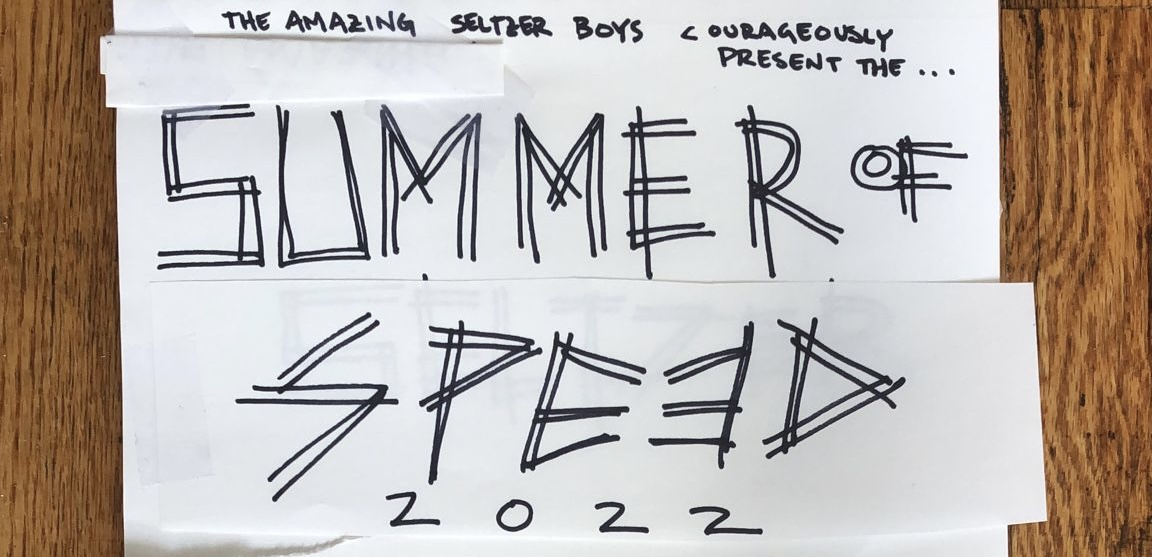 THE AMAZING SELTZER BOYS COURAGEOUSLY
PRESENT THE ...
SUMMER OF
SPEED
2022